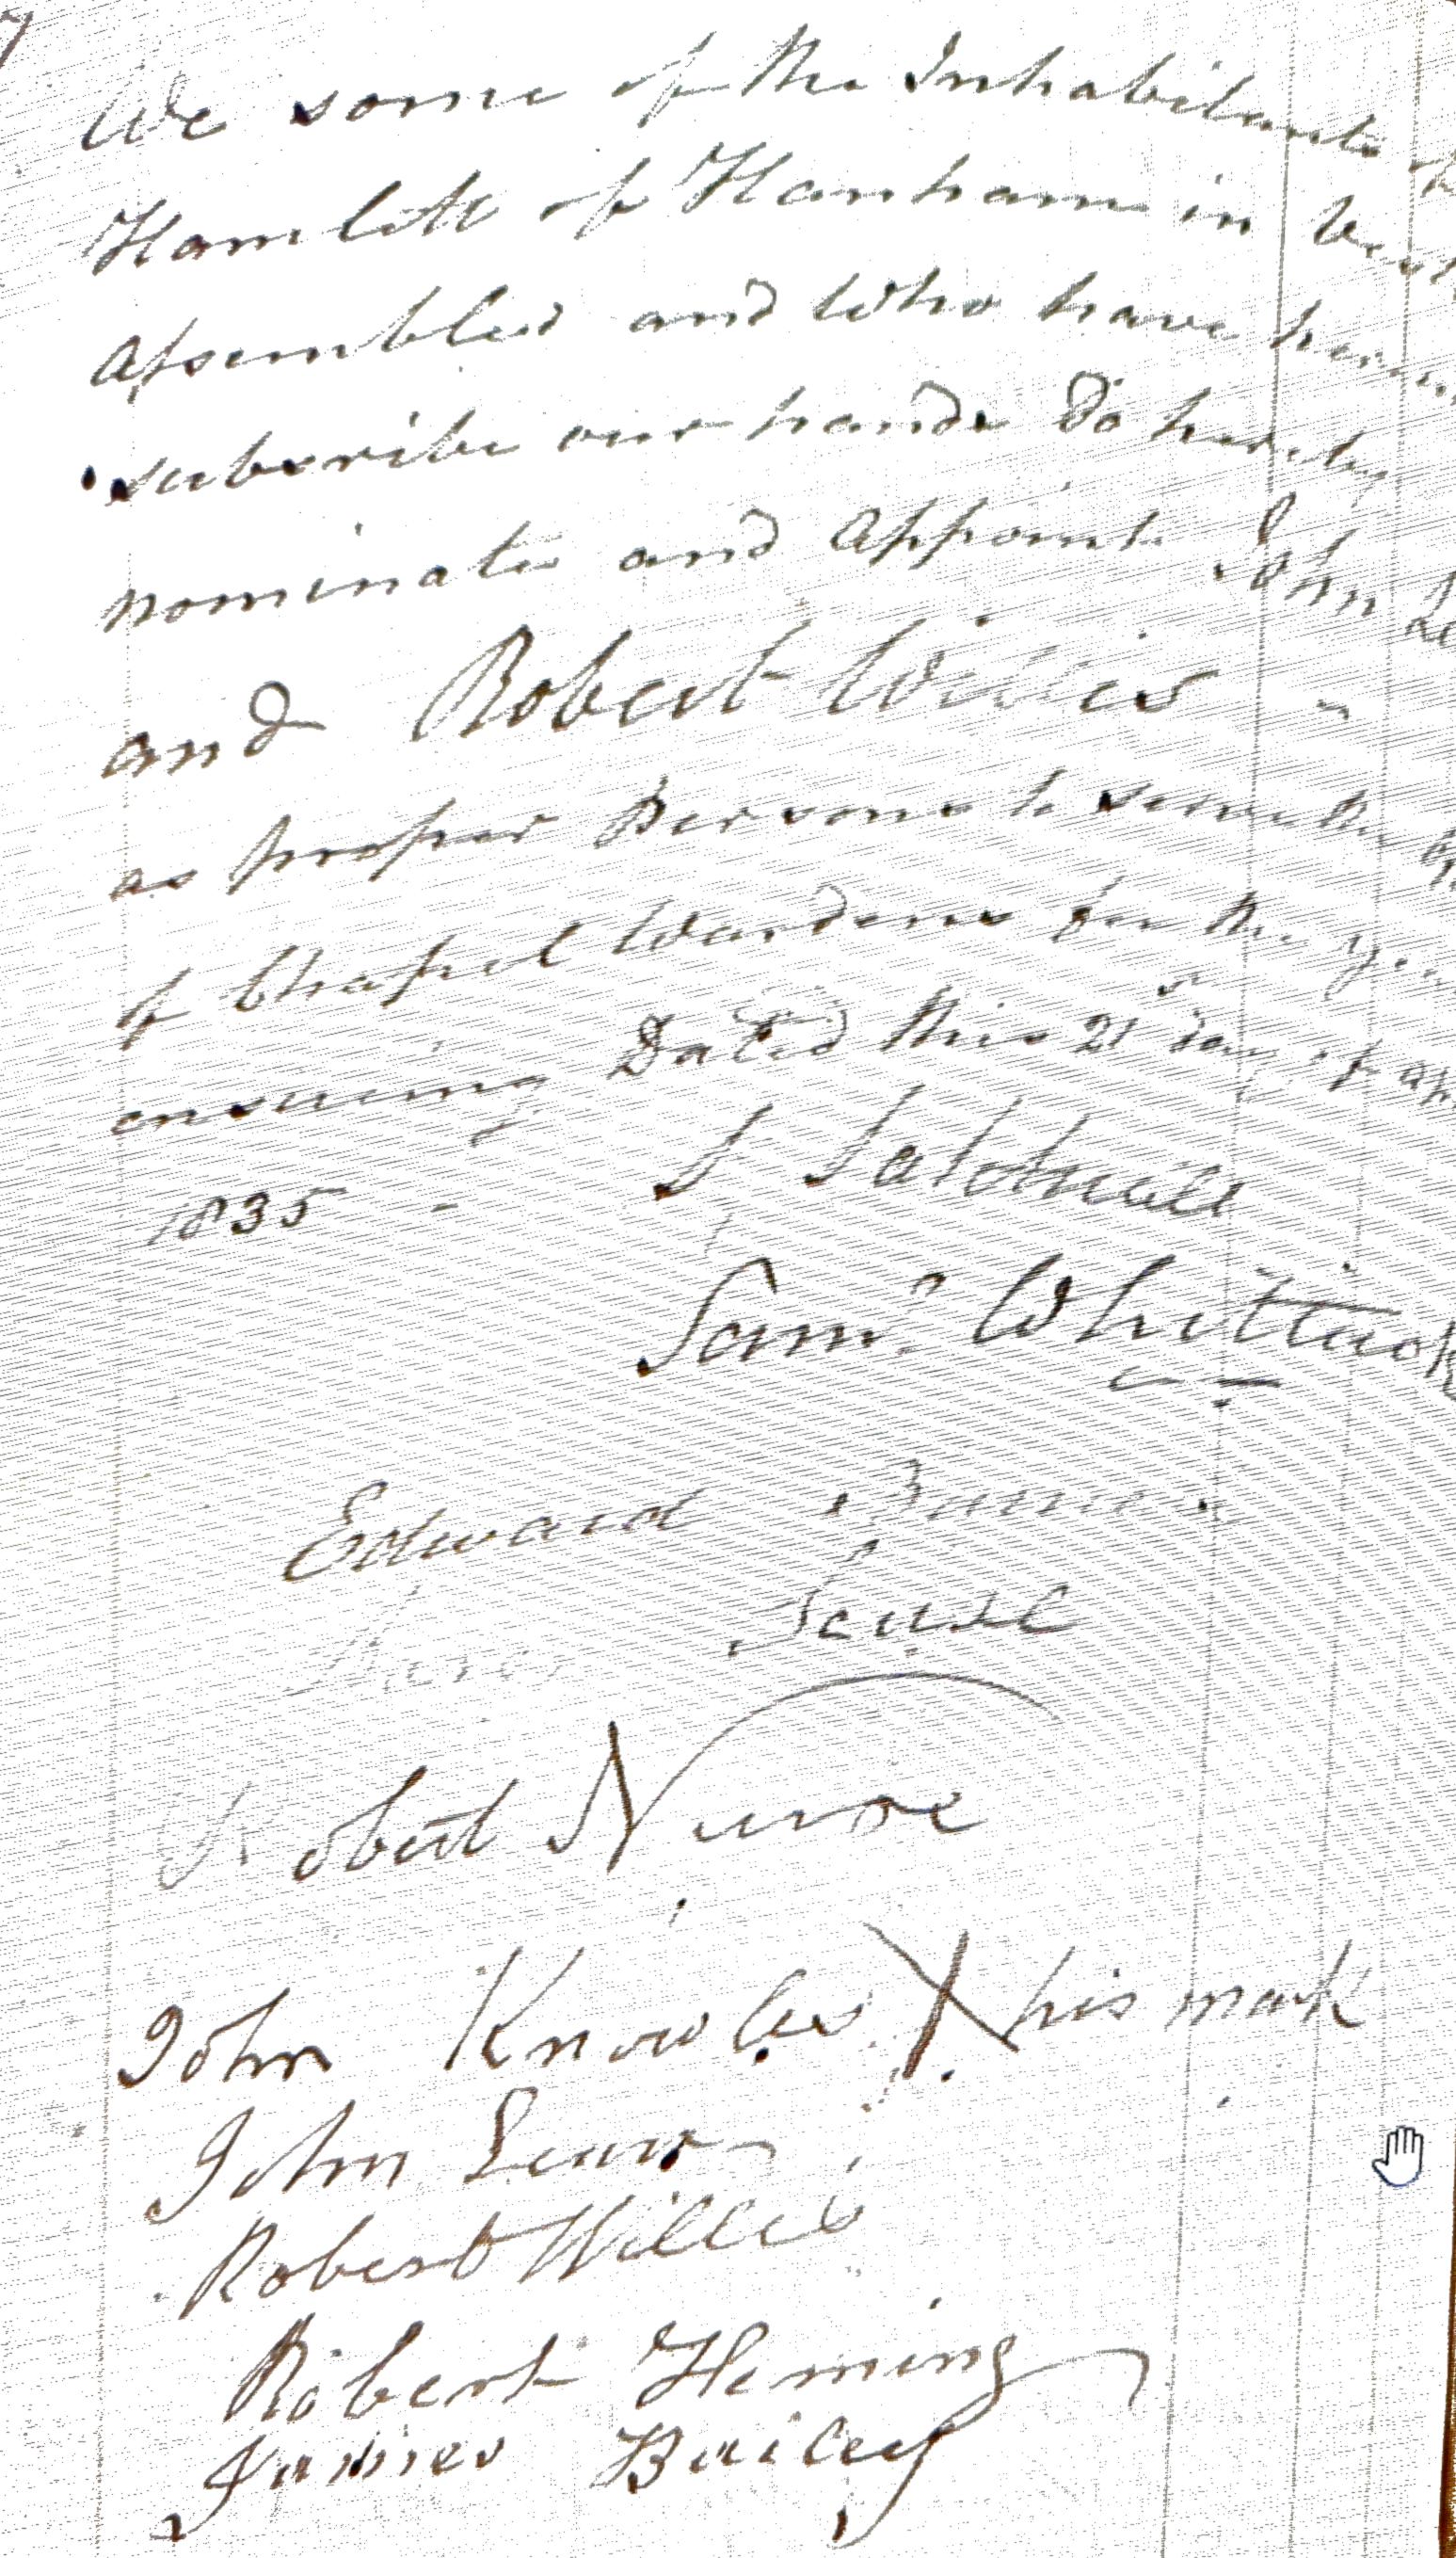 We some of the Inhabitants
Hamlett of Hanham in
Assembled and Who have
subscribe our hands Do hereby
nominate and Appoint John
and Robert Willis
as proper Persons to serve the
of Chapel Wardens for the year
ensueing Dated this 21st day of
1835
Saml Whittuck
Edward
Robert Nurse
John Knowles X his mark
John
Robert Willis
Robert Heming
James Bailey